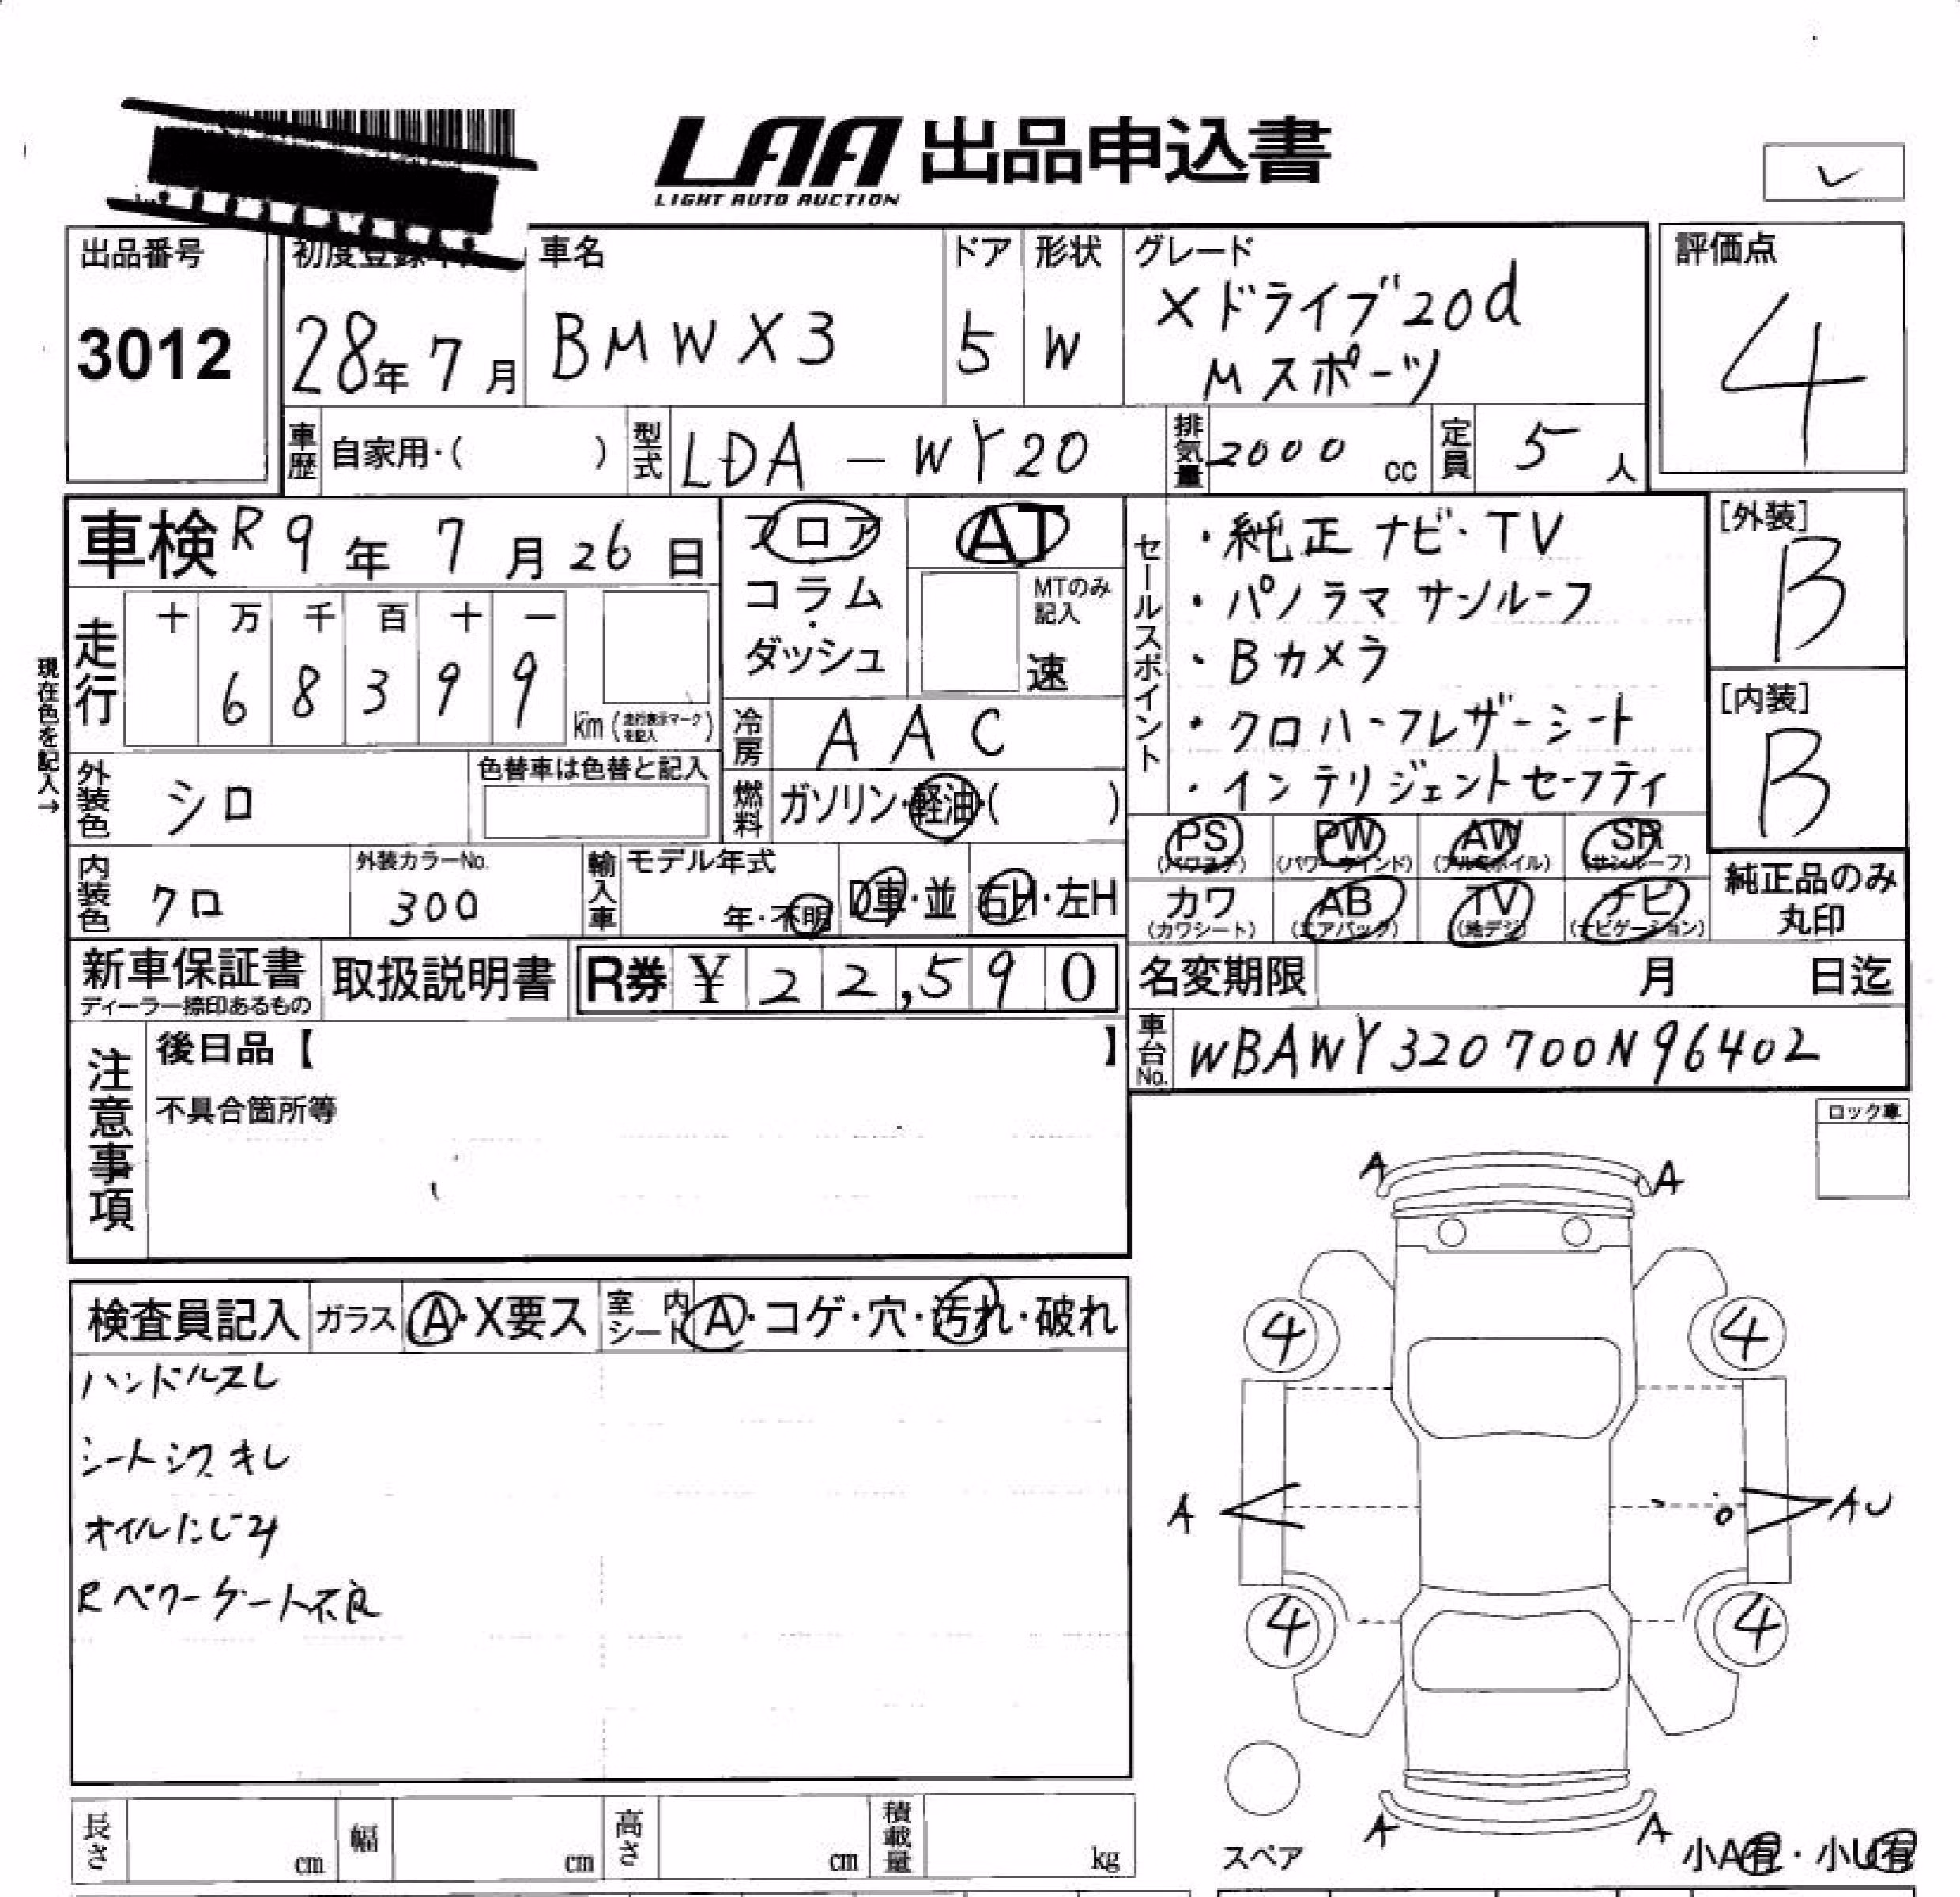 LAA 出品申込書
LIGHT AUTO AUCTION
出品番号
3012
初度登録年月
28年 7月
車名
BMW X3
ドア
5
形状
W
グレード
Xドライブ20d
Mスポーツ
評価点
4
車歴 自家用・( )
型式 LDA-WY20
排気量 2000 cc
定員 5 人
車検 R9年 7月 26日
走行
十 万 千 百 十 一
6 8 3 9 9
km (走行表示マークを記入)
現在色を記入→
外装色 シロ
色替車は色替と記入
内装色 クロ
外装カラーNo.
300
フロア
コラム
・
ダッシュ
AT
MTのみ
記入
速
冷房 AAC
燃料 ガソリン・軽油・( )
輸入車 モデル年式
年・不明
D車・並 右H・左H
セールスポイント
・純正ナビ・TV
・パノラマサンルーフ
・Bカメラ
・クロハーフレザーシート
・インテリジェントセーフティ
[外装]
B
[内装]
B
PS (パワステ)
PW (パワーウインド)
AW (アルミホイル)
SR (サンルーフ)
カワ (カワシート)
AB (エアバッグ)
TV (地デジ)
ナビ (ナビゲーション)
純正品のみ
丸印
新車保証書
ディーラー捺印あるもの
取扱説明書
R券 ¥ 22,590
名変期限 月 日迄
車台No. WBAWY320700N96402
注意事項
後日品【 】
不具合箇所等
ロック車
検査員記入 ガラス A・X要ス 室内シート A・コゲ・穴・汚れ・破れ
ハンドルスレ
シートシワ キレ
オイルにじみ
Rパワーゲート不良
A A
4 4
A AU
4 4
A A
スペア
小A有・小U有
長さ cm
幅 cm
高さ cm
積載量 kg